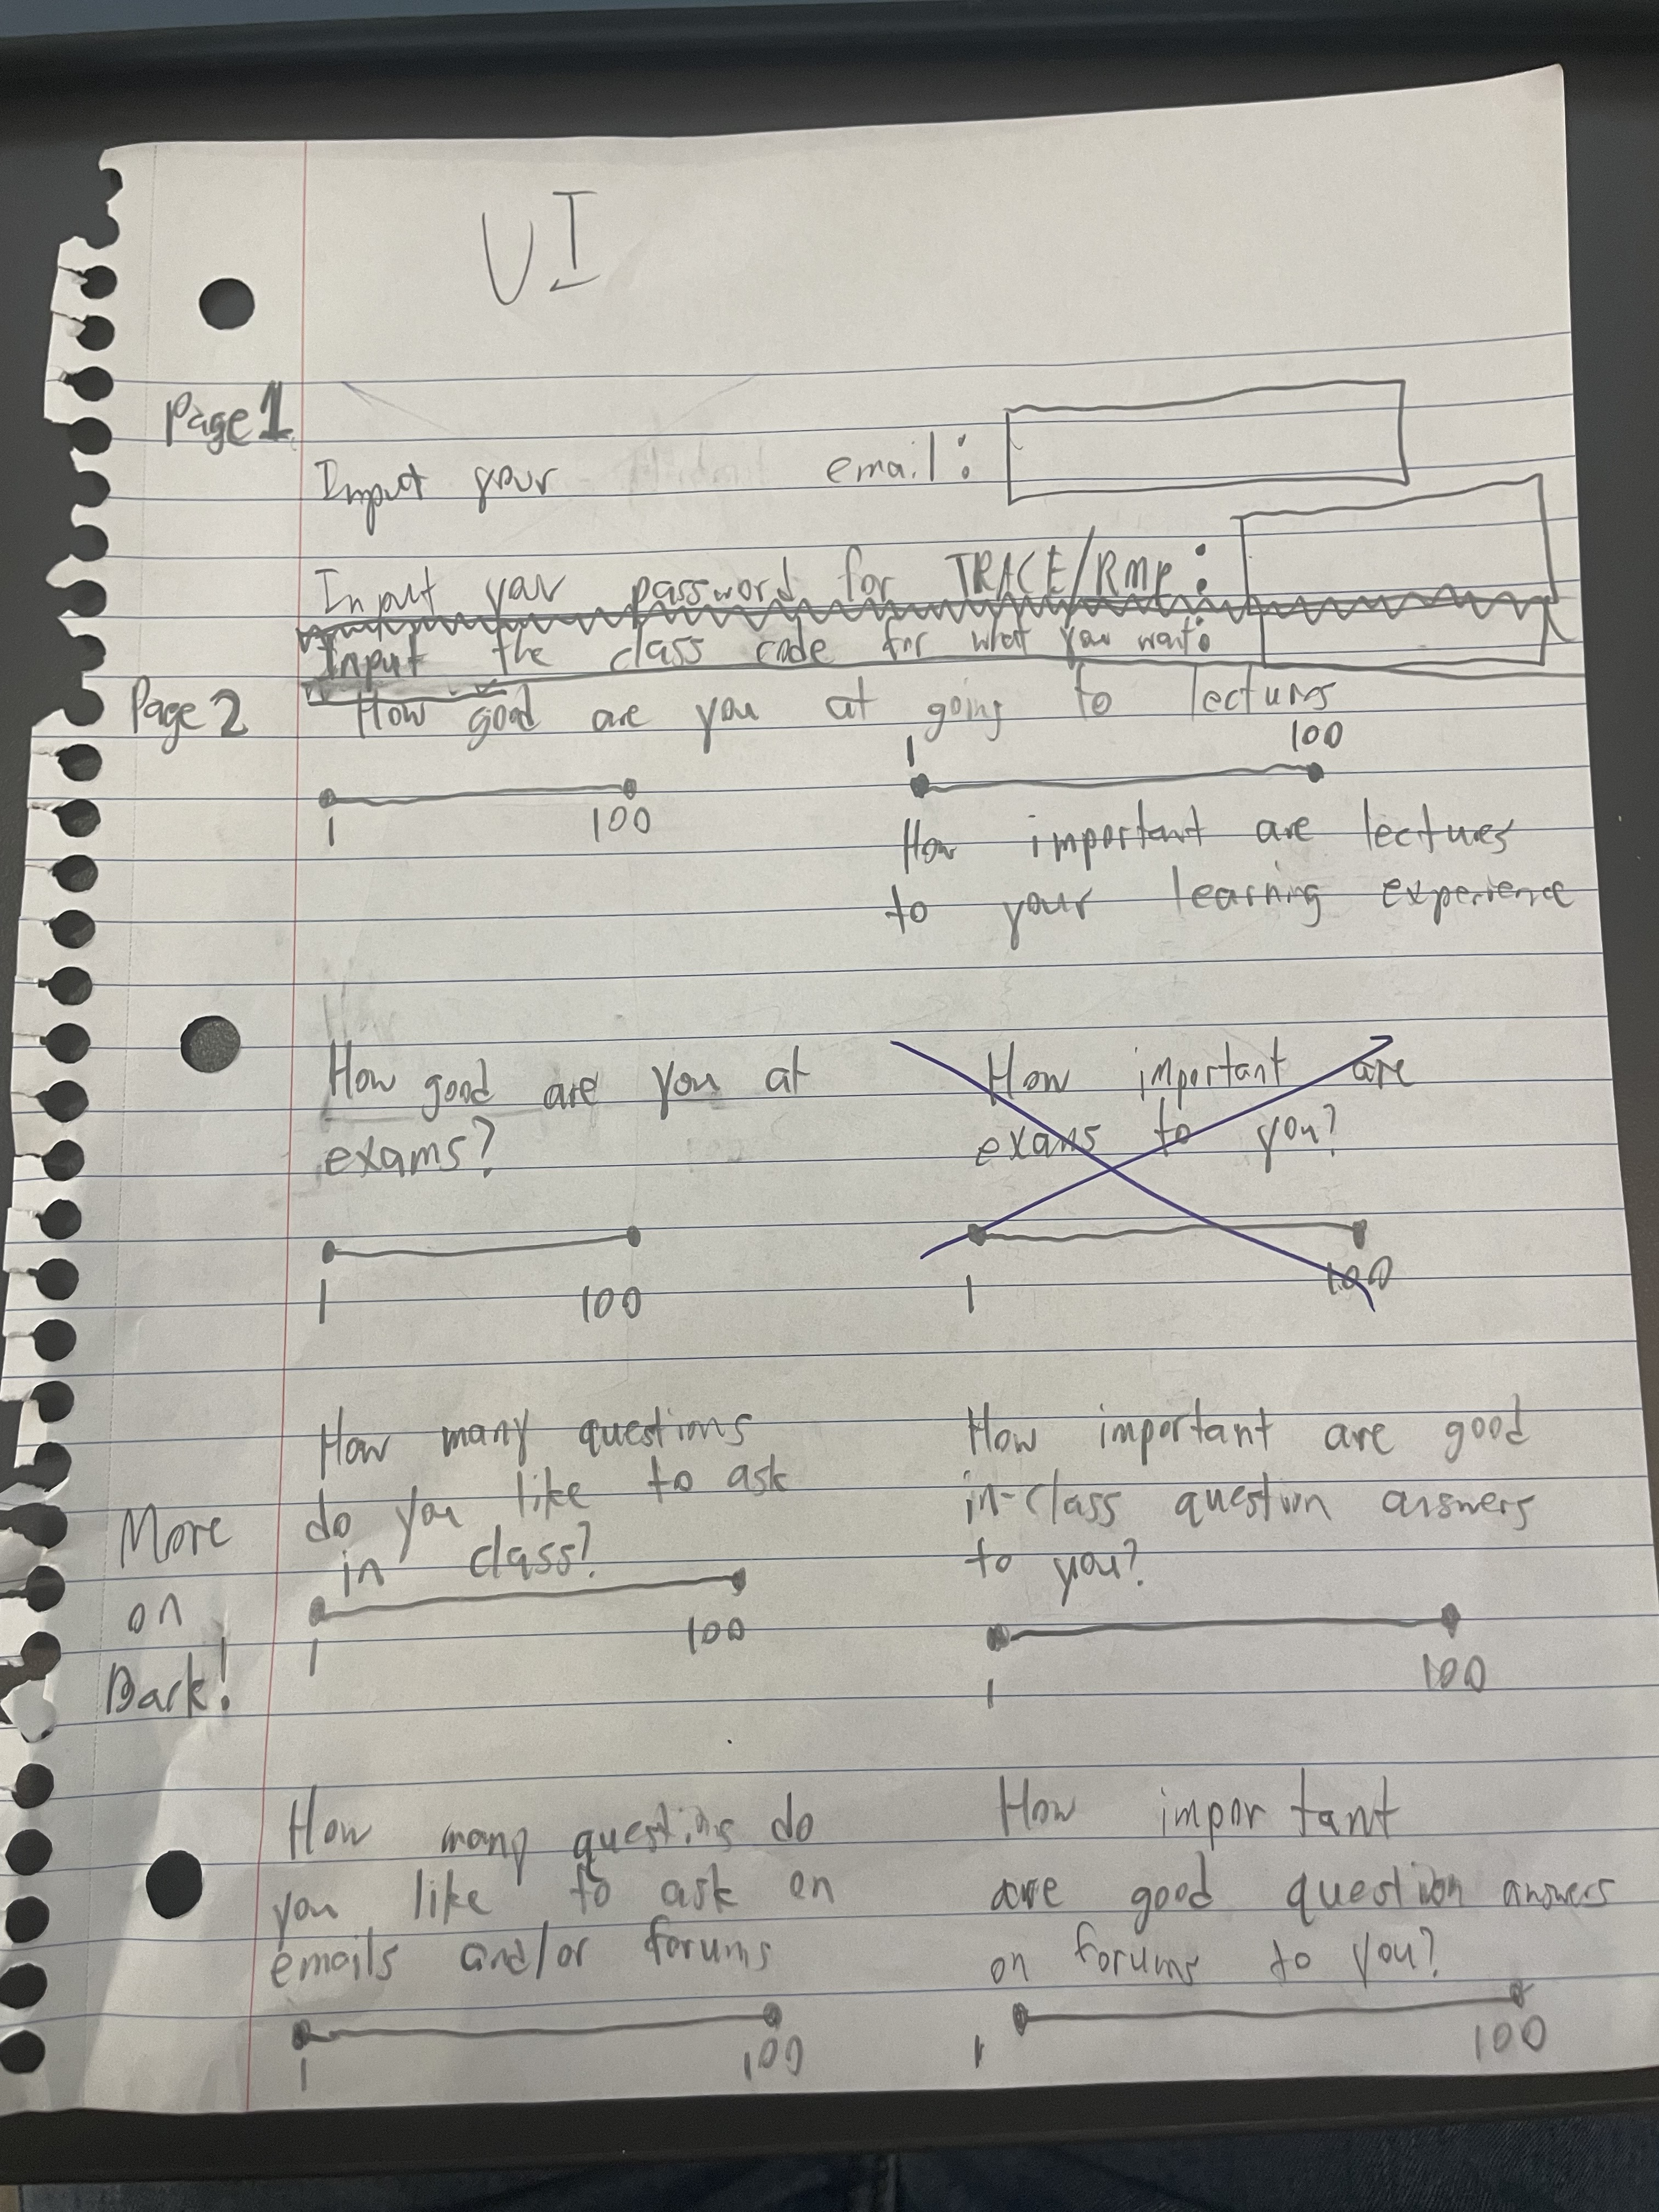 UI
Page 1
Input your email:
Input your password for TRACE/RMP:
Input the class code for what you want:
Page 2
How good are you at going to lectures
1 100
1 100
How important are lectures
to your learning experience
How good are you at
exams?
1 100
How important are
exams to you?
1 100
How many questions
do you like to ask
in class?
1 100
How important are good
in-class question answers
to you?
1 100
More
on
Back!
How many questions do
you like to ask on
emails and/or forums
1 100
How important
are good question answers
on forums to you?
1 100